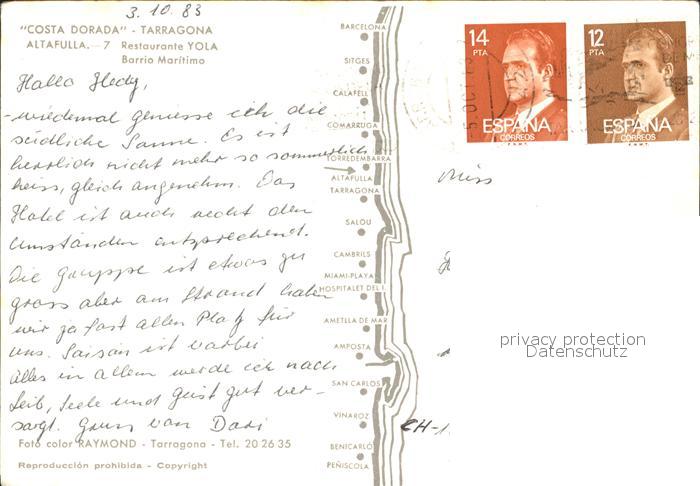 3.10.83
"COSTA DORADA" - TARRAGONA
ALTAFULLA.—7 Restaurante YOLA
Barrio Marítimo
Hallo Hedy,
wiedemal geniesse ich die
südliche Sonne. Es ist
herrlich nicht mehr so sommerlich
heiss, gleich angenehm. Das
Hotel ist auch recht den
Umständen entsprechend.
Die Gruppe ist etwas zu
gross aber am Strand haben
wir ja fast allen Platz für
uns. Saison ist vorbei
alles in allem werde ich nach
Leib, Seele und Geist gut ver-
sorgt. Gruss von Dodi
Foto color RAYMOND - Tarragona - Tel. 20 26 35
Reproducción prohibida - Copyright
BARCELONA
SITGES
CALAFELL
COMARRUGA
TORREDEMBARRA
ALTAFULLA
TARRAGONA
SALOU
CAMBRILS
MIAMI-PLAYA
HOSPITALET DEL I.
AMETLLA DE MAR
AMPOSTA
SAN CARLOS
VINAROZ
BENICARLÓ
PEÑISCOLA
14 PTA
ESPAÑA
CORREOS
F.N.M.T.
12 PTA
ESPAÑA
CORREOS
F.N.M.T.
Miss
privacy protection
Datenschutz
CH-1